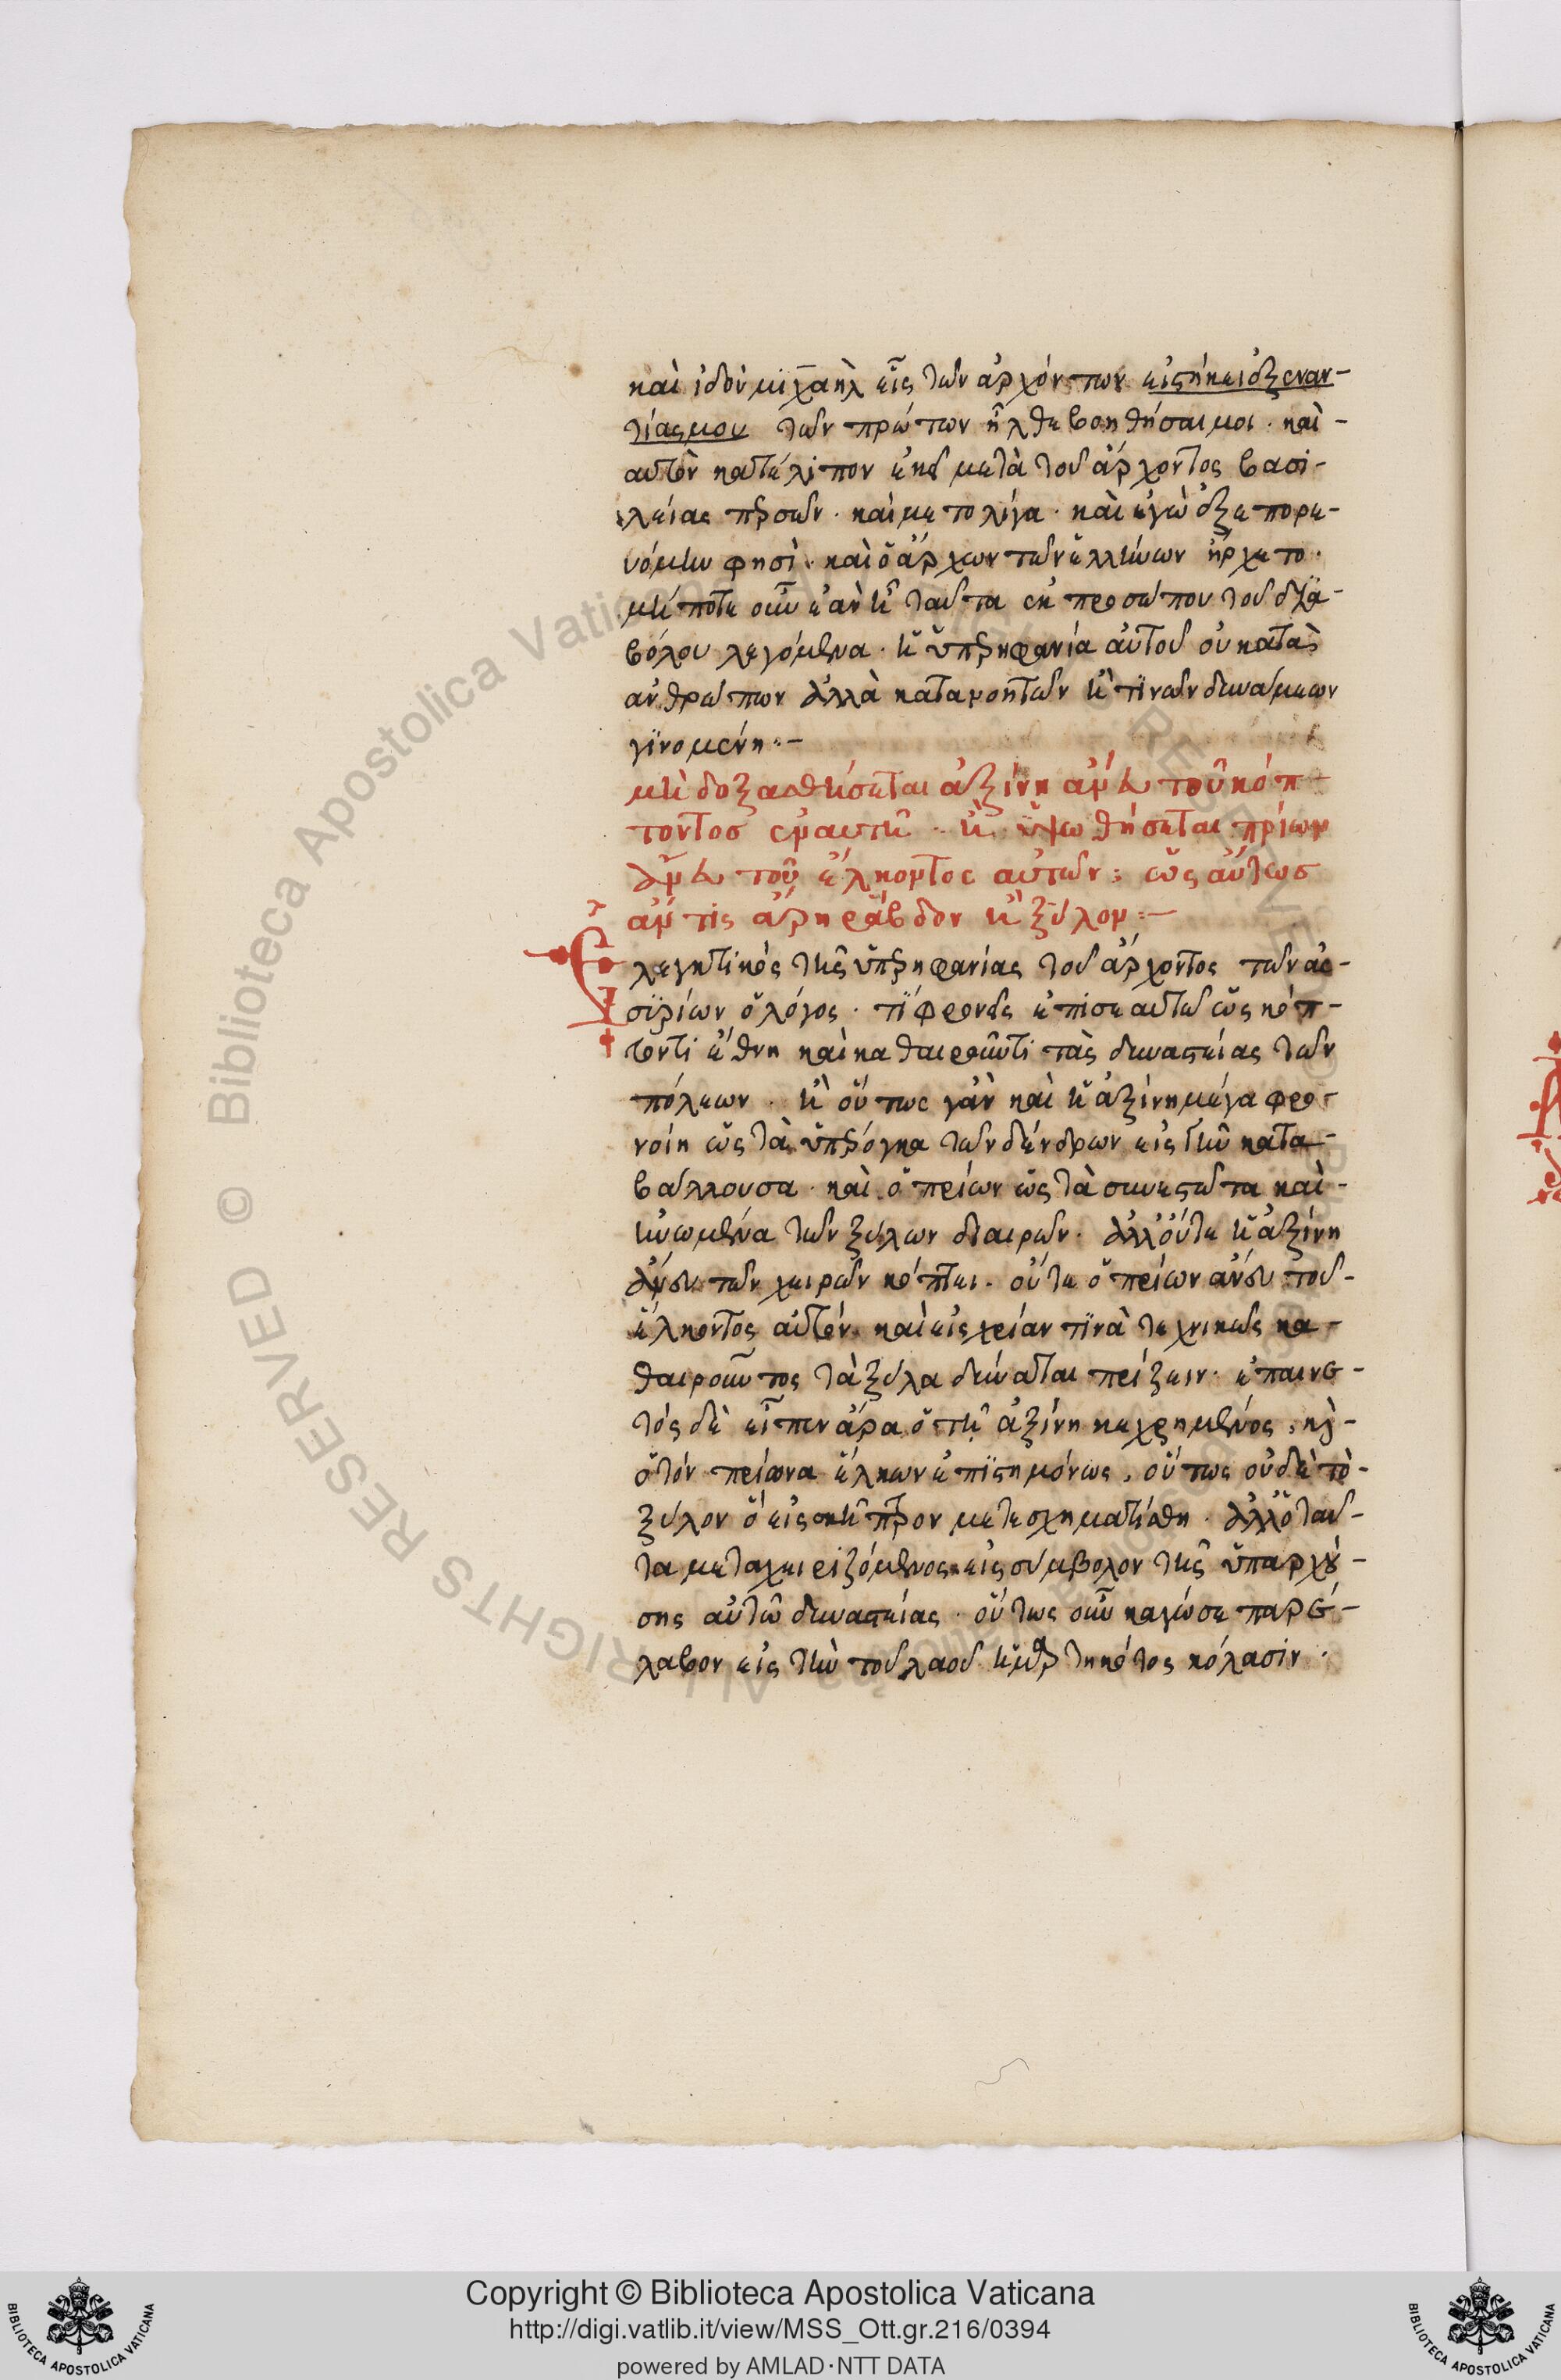 καὶ ἰδοὺ μιχαὴλ εἷς τῶν ἀρχόντων εἱστήκει ἐξεναν-
τίας μου τῶν πρώτων ἦλθε βοηθήσαι μοι· καὶ-
αυτὸν κατέλιπον ἐκεῖ μετὰ τοῦ ἄρχοντος βασι-
λείας περσῶν· καὶ μετολίγα· καὶ ἐγὼ ἐξεπορευ-
όμην φησὶ· καὶ ὁ ἄρχων τῶν ἑλλήνων ἤρχετο·
μήποτε οὖν ἐὰν ἦ ταῦτα ἐκ προσώπου τοῦ δϊα-
βόλου λεγόμενα· ἡ ὑπερηφανία αὐτοῦ οὐ κατὰ
ανθρώπων ἀλλὰ κατανοητῶν ἢ τϊνῶν δυνάμεων
γϊνομένη:-
μὴ δοξασθήσεται ἀξίνη ἄνευ τοῦ κόπ-
τοντοσ ἐν αυτῆ· ἢ ὑψωθήσεται πρίων
ἄνευ τοῦ ἕλκοντος αὐτὸν: ὡς αὔτωσ
ἄν τις ἄρη ράβδον ἢ ξύλον:-
Ἐλεγκτικὸς τῆς ὑπερηφανίας τοῦ ἄρχοντος τῶν ἀσ-
σϊρίων ὁ λόγος· τί φρονεῖς ἐπὶ σεαυτῶ ὡς κόπ-
τοντι ἔθνη καὶ καθαιροῦντι τὰς δυναστείας τῶν
πόλεων· ἢ οὕτως γὰν καὶ ἡ ἀξίνη μέγα φρο-
νοίη ὡς τὰ ὑπέρογκα τῶν δένδρων εἰς γῆν κατα-
βάλλουσα· καὶ ὁ πρίων ὡς τὰ συνεστῶτα καὶ-
ἡνωμένα τῶν ξύλων διαιρῶν· ἀλλ' οὔτε ἡ ἀξίνη
ἄνευ τῶν χειρῶν κόπτει· οὔτε ὁ πρίων ἄνευ τοῦ-
ἕλκοντος αὐτόν· καὶ εἰς χρείαν τϊνὰ τεχνικῶς κα-
θαιροῦντος τὰ ξύλα δύναται πρίζειν· ἐπαινε-
τός δὲ εἶπεν ἄρα ὁ τῆ ἀξίνη κεχρημένος, κὶ-
ὁ τόν πρίονα ἕλκων ἐπϊστημόνως, οὕτως οὐδὲ τὸ-
ξύλον ὅ εἰς σκῆπτρον μετεσχηματίσθη· ἀλλ' ὁ ταῦ-
τα μεταχειριζόμενος εἰς σύμβολον τῆς ὑπαρχού-
σης αὐτῶ δυναστείας· οὕτως οὖν καγώ σε παρέ-
λαβον εἰς τὴν τοῦ λαοῦ ἡμαρτηκότος κόλασιν·
Copyright © Biblioteca Apostolica Vaticana
http://digi.vatlib.it/view/MSS_Ott.gr.216/0394
powered by AMLAD·NTT DATA
BIBLIOTECA APOSTOLICA VATICANA
BIBLIOTECA APOSTOLICA VATICANA